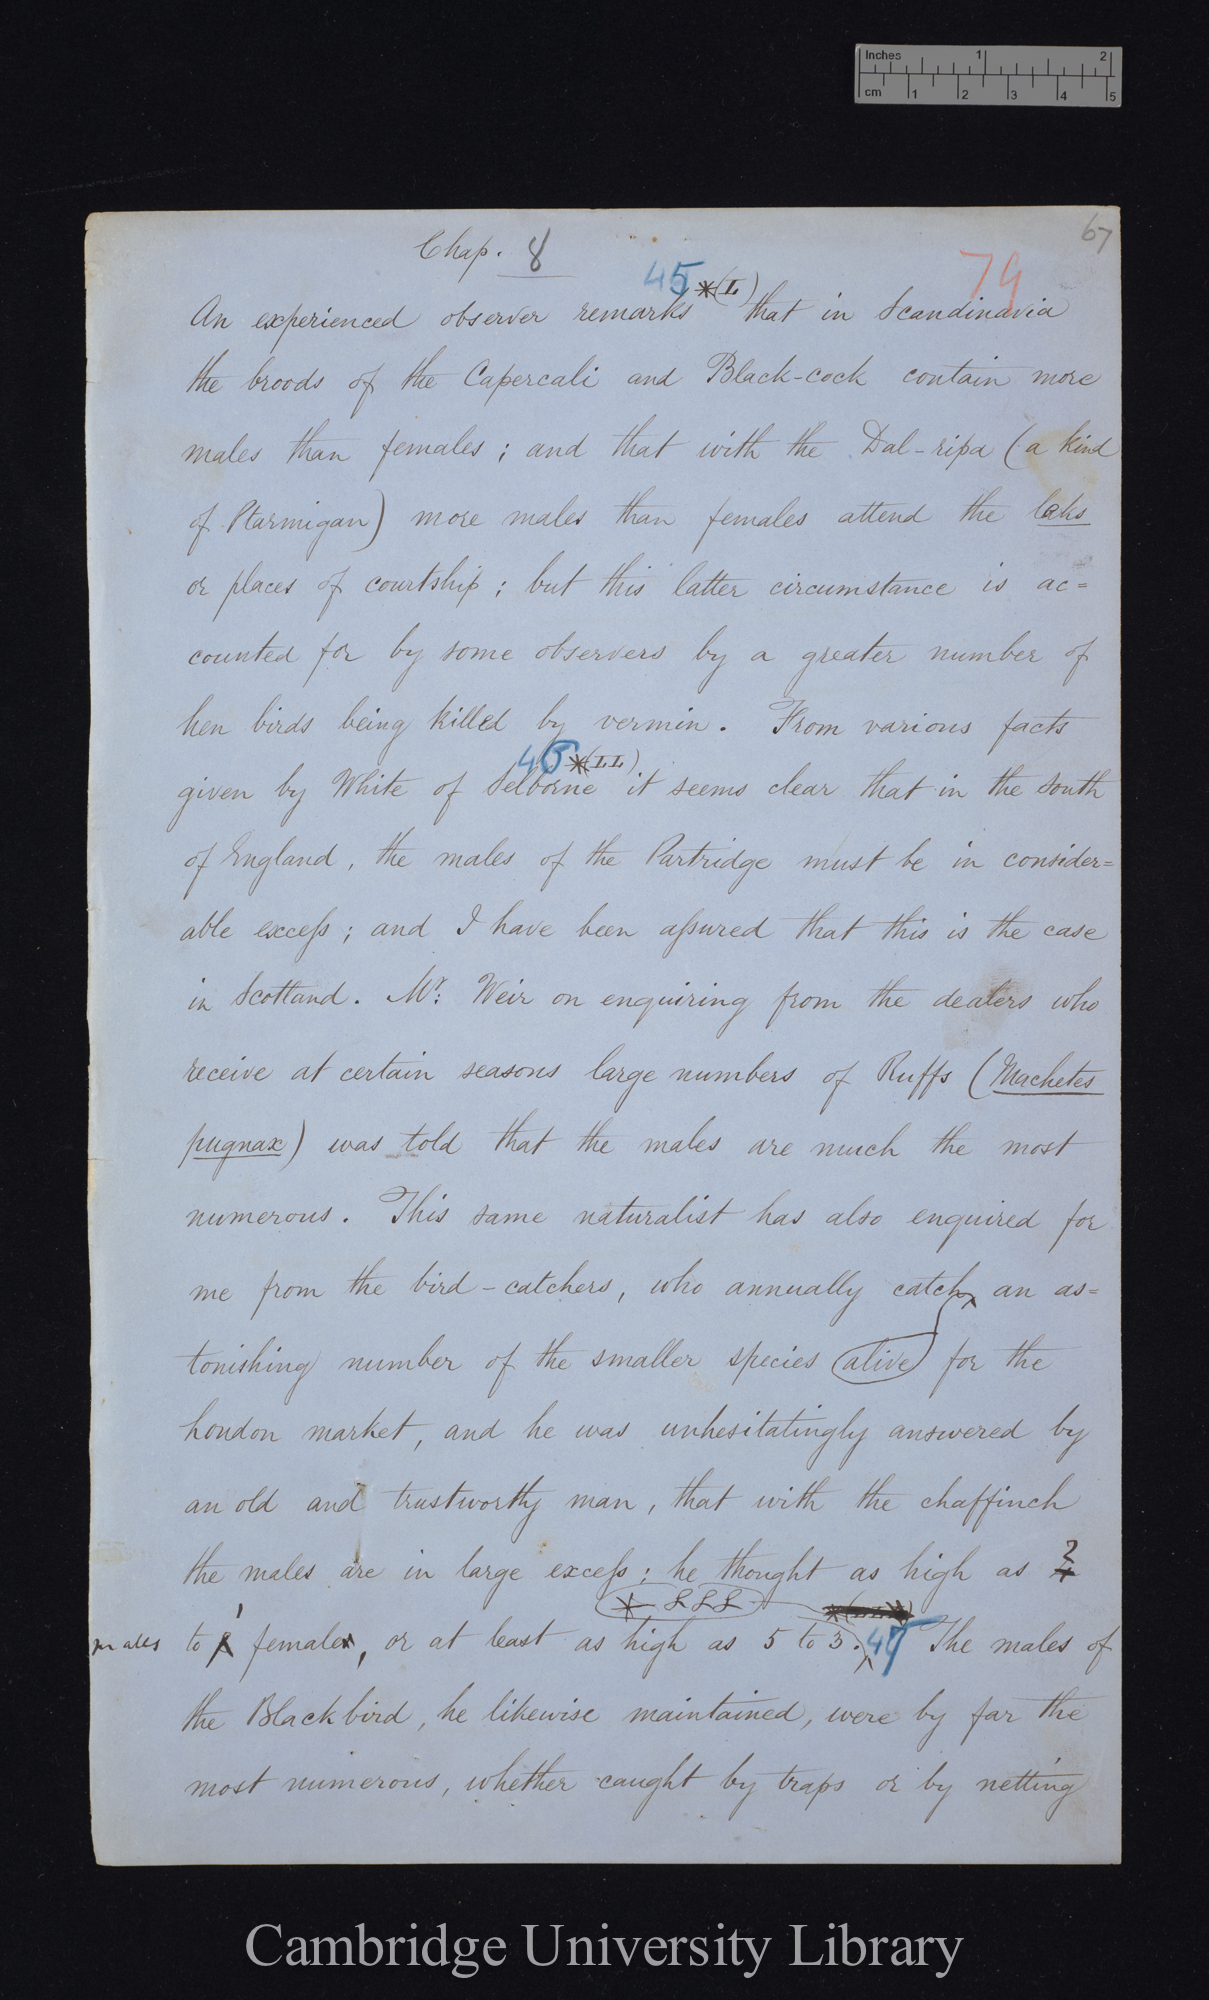 Inches 1 2
cm 1 2 3 4 5
67
Chap. 8
79
45 *(L)
An experienced observer remarks that in Scandinavia
the broods of the Capercali and Black-cock contain more
males than females; and that with the Dal-ripa (a kind
of Ptarmigan) more males than females attend the leks
or places of courtship; but this latter circumstance is ac=
counted for by some observers by a greater number of
hen birds being killed by vermin. From various facts
46 *(LL)
given by White of Selborne it seems clear that in the south
of England, the males of the Partridge must be in consider=
able excess; and I have been assured that this is the case
in Scotland. Mr. Weir on enquiring from the dealers who
receive at certain seasons large numbers of Ruffs (Machetes
pugnax) was told that the males are much the most
numerous. This same naturalist has also enquired for
me from the bird-catchers, who annually catch an as=
tonishing number of the smaller species alive for the
London market, and he was unhesitatingly answered by
an old and trustworthy man, that with the chaffinch
the males are in large excess; he thought as high as 2
* LLL
males to 1 female, or at least as high as 5 to 3. 47 The males of
the Blackbird, he likewise maintained, were by far the
most numerous, whether caught by traps or by netting
Cambridge University Library